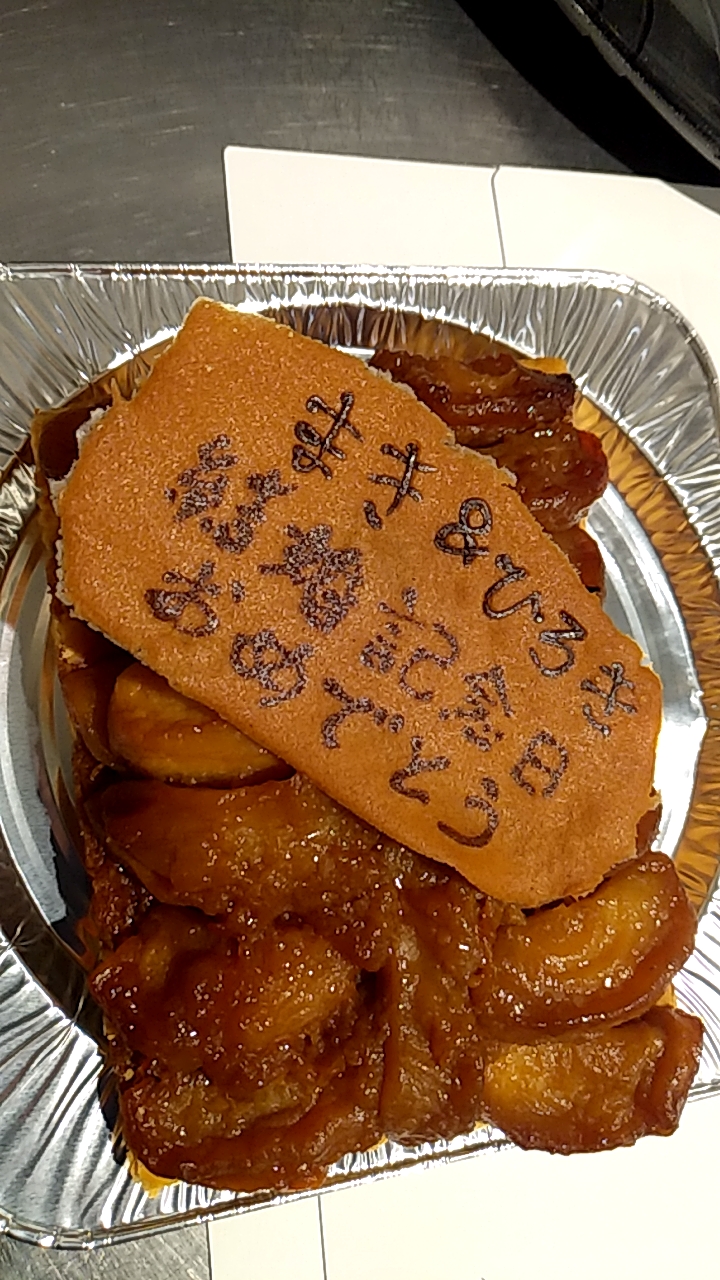 まき&ひろき
結婚記念日
おめでとう